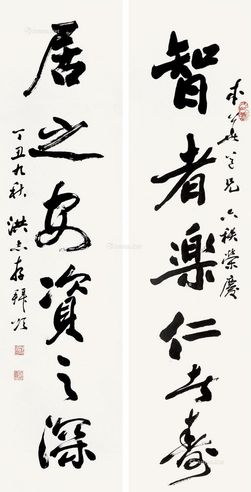 智者樂仁者壽
居之安資之深
兄六秩榮慶
丁丑九秋洪志存拜頌